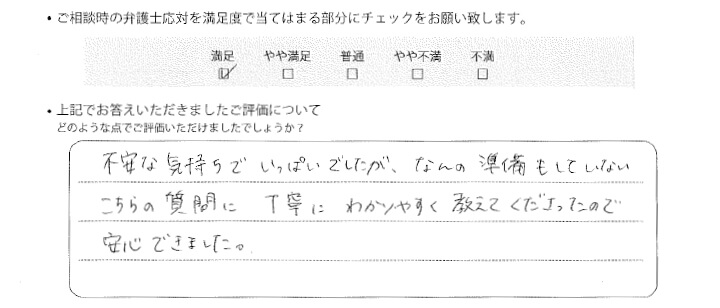 ・ご相談時の弁護士応対を満足度で当てはまる部分にチェックをお願い致します。
満足 やや満足 普通 やや不満 不満
☑ □ □ □ □
・上記でお答えいただきましたご評価について
どのような点でご評価いただけましたでしょうか？
不安な気持ちでいっぱいでしたが、なんの準備もしていない
こちらの質問に丁寧にわかりやすく教えてくださったので
安心できました。